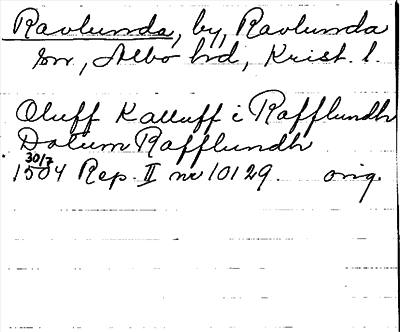 Ravlunda, by, Ravlunda
sn, Albo hd, Krist. l.
Oluff Kalluff i Rafflundh
Datum Rafflundh
30/7
1504 Rep. II nr 10129. orig.